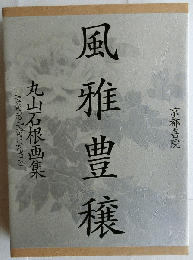 風雅豊穣
丸山石根画集
京都書院